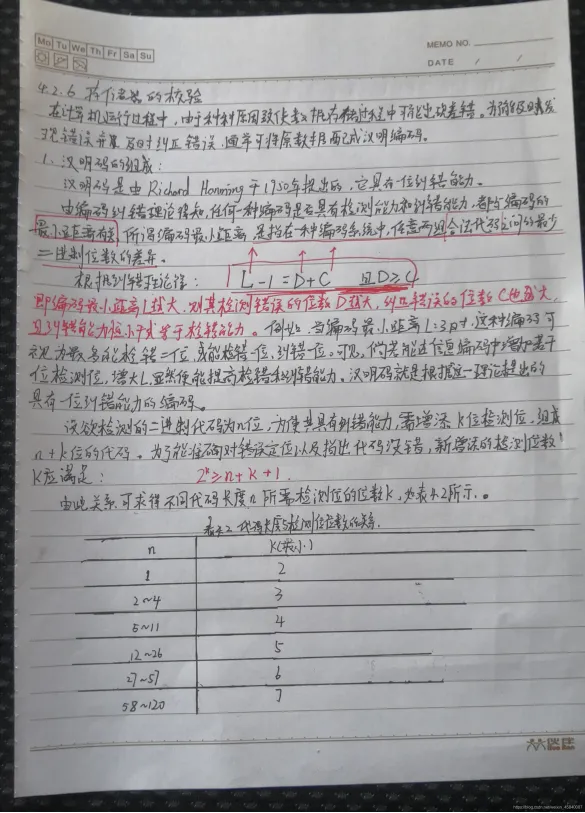 Mo Tu We Th Fr Sa Su
MEMO NO.
DATE / /
4.2.6 存储器的校验
在计算机运行过程中,由于种种原因致使数据在存储过程中可能出现差错。为能及时发
现错误并及时纠正错误,通常可将原数据配成汉明编码。
1. 汉明码的组成:
汉明码是由Richard Hanming于1950年提出的,它具有一位纠错能力。
由编码纠错理论得知,任何一种编码是否具有检测能力和纠错能力,都与编码的
最小距离有关,所谓编码最小距离,是指在一种编码系统中,任意两组合法代码之间的最少
二进制位数的差异。
根据纠错理论得: L-1=D+C 且D≥C
即编码最小距离L越大,则其检测错误的位数D越大,纠正错误的位数C也越大,
且纠错能力恒小于或等于检错能力。例如,当编码最小距离L=3时,这种编码可
视为最多能检错二位,或能检错一位,纠错一位。可见,倘若能在信息编码中增加若干
位检测位,增大L,显然便能提高检错和纠错能力。汉明码就是根据这一理论提出的
具有一位纠错能力的编码。
设欲检测的二进制代码为n位,为使其具有纠错能力,需增添k位检测位,组成
n+k位的代码。为了能准确对错误定位以及指出代码没错,新增添的检测位数
k应满足: 2ᵏ≥n+k+1
由此关系可求得不同代码长度n所需检测位的位数k,如表4.2所示。
表4.2 代码长度与检测位位数的关系
n k(最小)
1 2
2~4 3
5~11 4
12~26 5
27~57 6
58~120 7